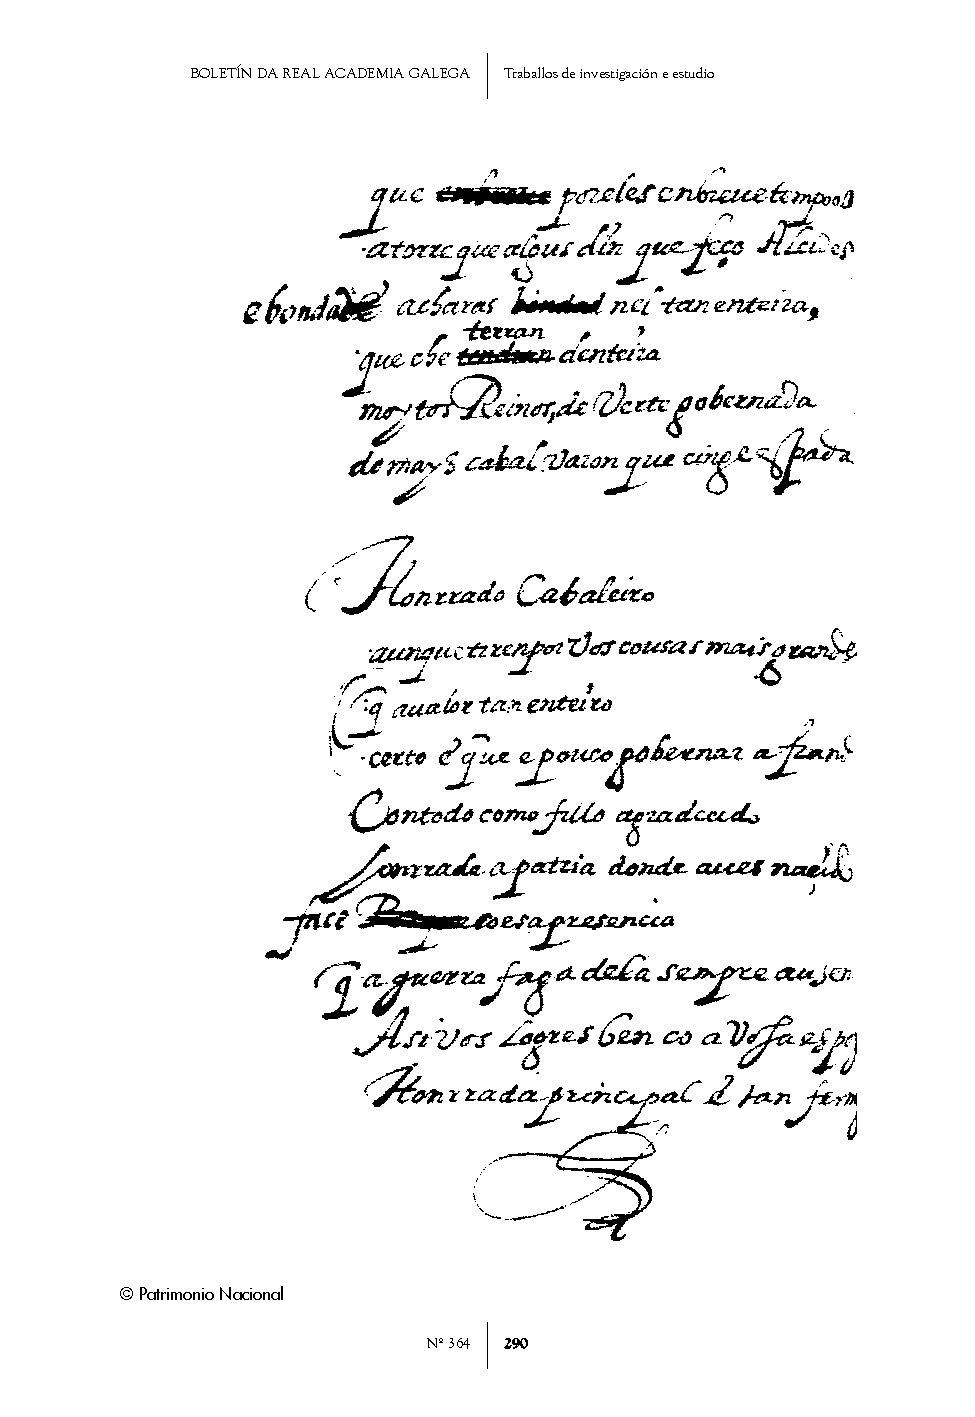 BOLETÍN DA REAL ACADEMIA GALEGA Traballos de investigación e estudio
que por eles en breue tempo
a torre que algus din que feço Alcides
e bondade acharas nel tan enteira,
terran
que che denteira
moytos Reinos, de Verte gobernada
de mays cabal varon que cinge espada
Honrrado Cabaleiro
aunque tiren por Vos cousas mais grande
q aualor tan enteiro
certo é que e pouco gobernar a frand
Contodo como fillo agradecido
honrrade a patria donde aues nacido
co esa presencia
q a guerra faga dela sempre ausen
Asi vos logres ben co a Vosa espo
Honrrada principal é tan ferm
© Patrimonio Nacional
Nº 364 290